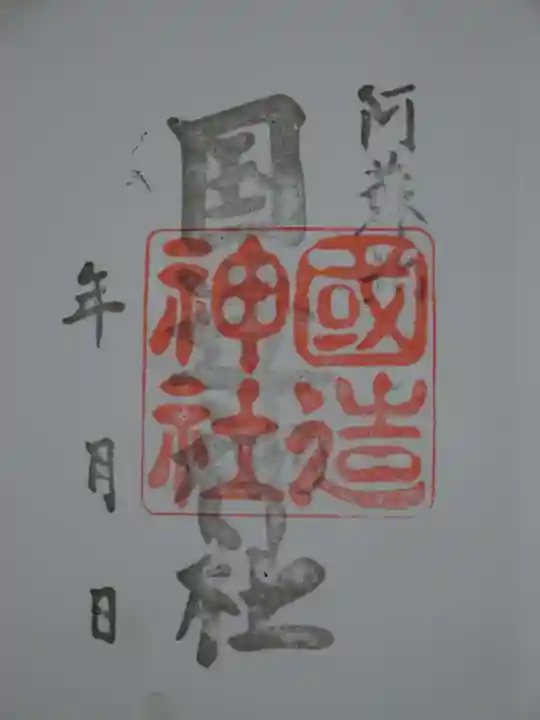 阿蘇
国造神社
國造
神社
年月日